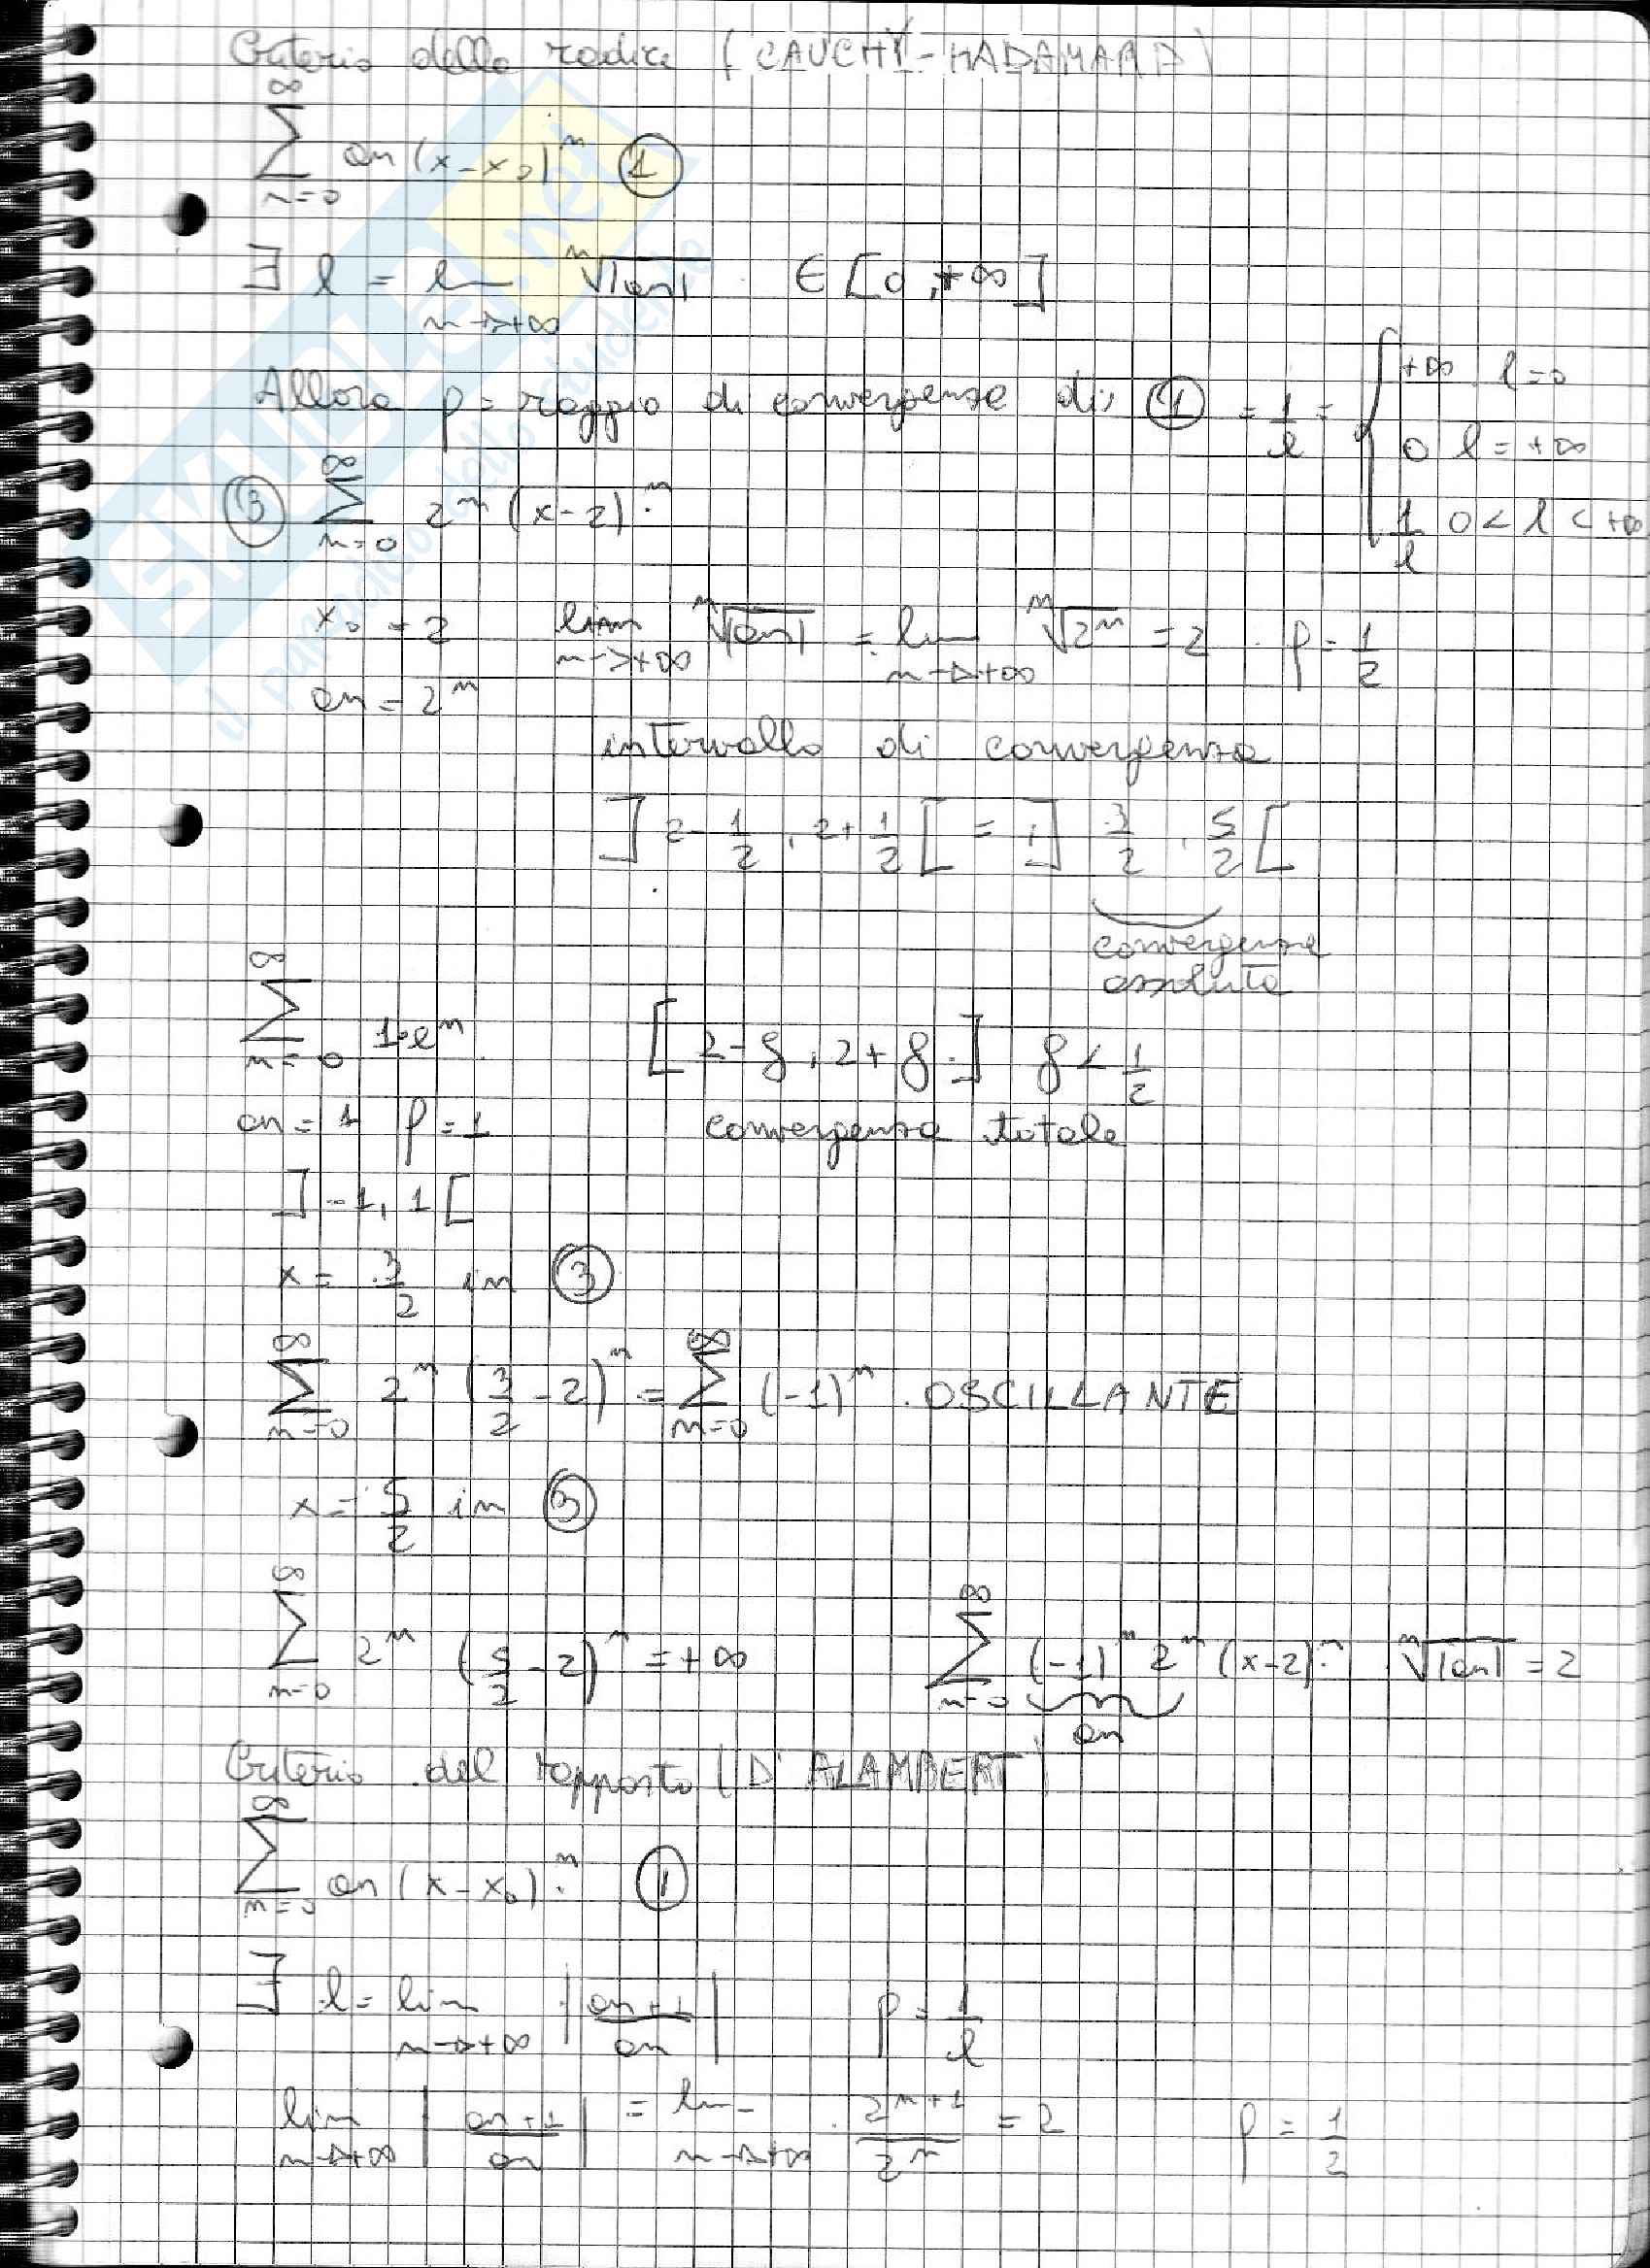 Criterio della radice (CAUCHY-HADAMARD)
∑_{n=0}^{∞} an (x-x₀)ⁿ ①
∃ l = lim_{n→+∞} ⁿ√|an| ∈ [0,+∞]
Allora ρ = raggio di convergenza di ① = 1/l = { +∞ l=0
0 l=+∞
1/l 0<l<+∞
③ ∑_{n=0}^{∞} 2ⁿ (x-2)ⁿ
x₀ = 2 lim_{n→+∞} ⁿ√|an| = lim_{n→+∞} ⁿ√2ⁿ = 2 ρ = 1/2
an = 2ⁿ
intervallo di convergenza
]2-1/2, 2+1/2[ = ]3/2, 5/2[
convergenza
assoluta
∑_{n=0}^{∞} 1·eⁿ
[2-δ, 2+δ] δ < 1/2
an = 1 ρ = 1
convergenza totale
]-1, 1[
x = 3/2 in ③
∑_{n=0}^{∞} 2ⁿ (3/2 - 2)ⁿ = ∑_{n=0}^{∞} (-1)ⁿ OSCILLANTE
x = 5/2 in ③
∑_{n=0}^{∞} 2ⁿ (5/2 - 2)ⁿ = +∞
∑_{n=0}^{∞} (-1)ⁿ 2ⁿ (x-2)ⁿ ⁿ√|an| = 2
an
Criterio del rapporto (D'ALAMBERT)
∑_{n=0}^{∞} an (x-x₀)ⁿ ①
∃ l = lim_{n→+∞} |an+1/an| ρ = 1/l
lim_{n→+∞} |an+1/an| = lim_{n→+∞} 2ⁿ⁺¹/2ⁿ = 2 ρ = 1/2
SKUOLA.net
il paradiso dello studente